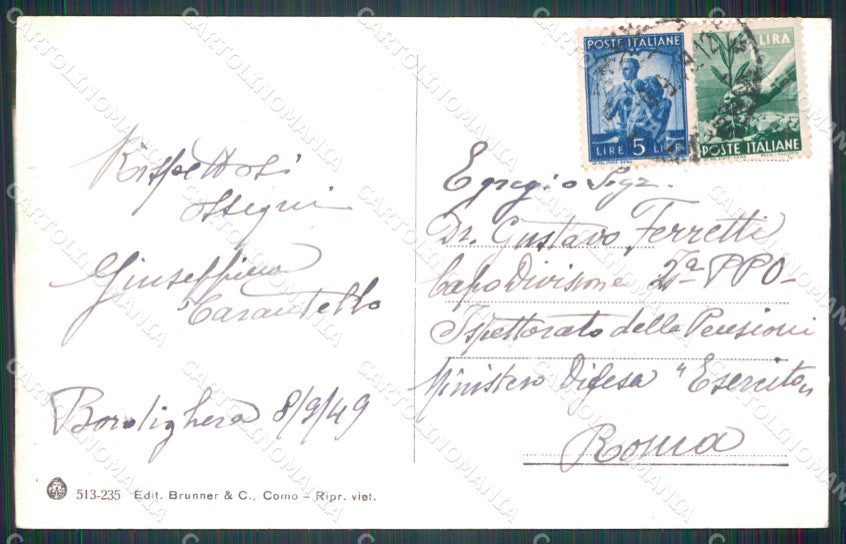 POSTE ITALIANE
LIRE 5 LIRE
LIRA
POSTE ITALIANE
Rispettosi
ossequi
Giuseppina
Carantello
Bordighera 8/9/49
Egregio Sigr.
Dr. Gustavo Ferretti
Capo Divisione PPO-
Ispettorato delle Pensioni
Ministero Difesa "Esercito"
Roma
513-235 Edit. Brunner & C., Como – Ripr. viet.
CARTOLINOMANIA